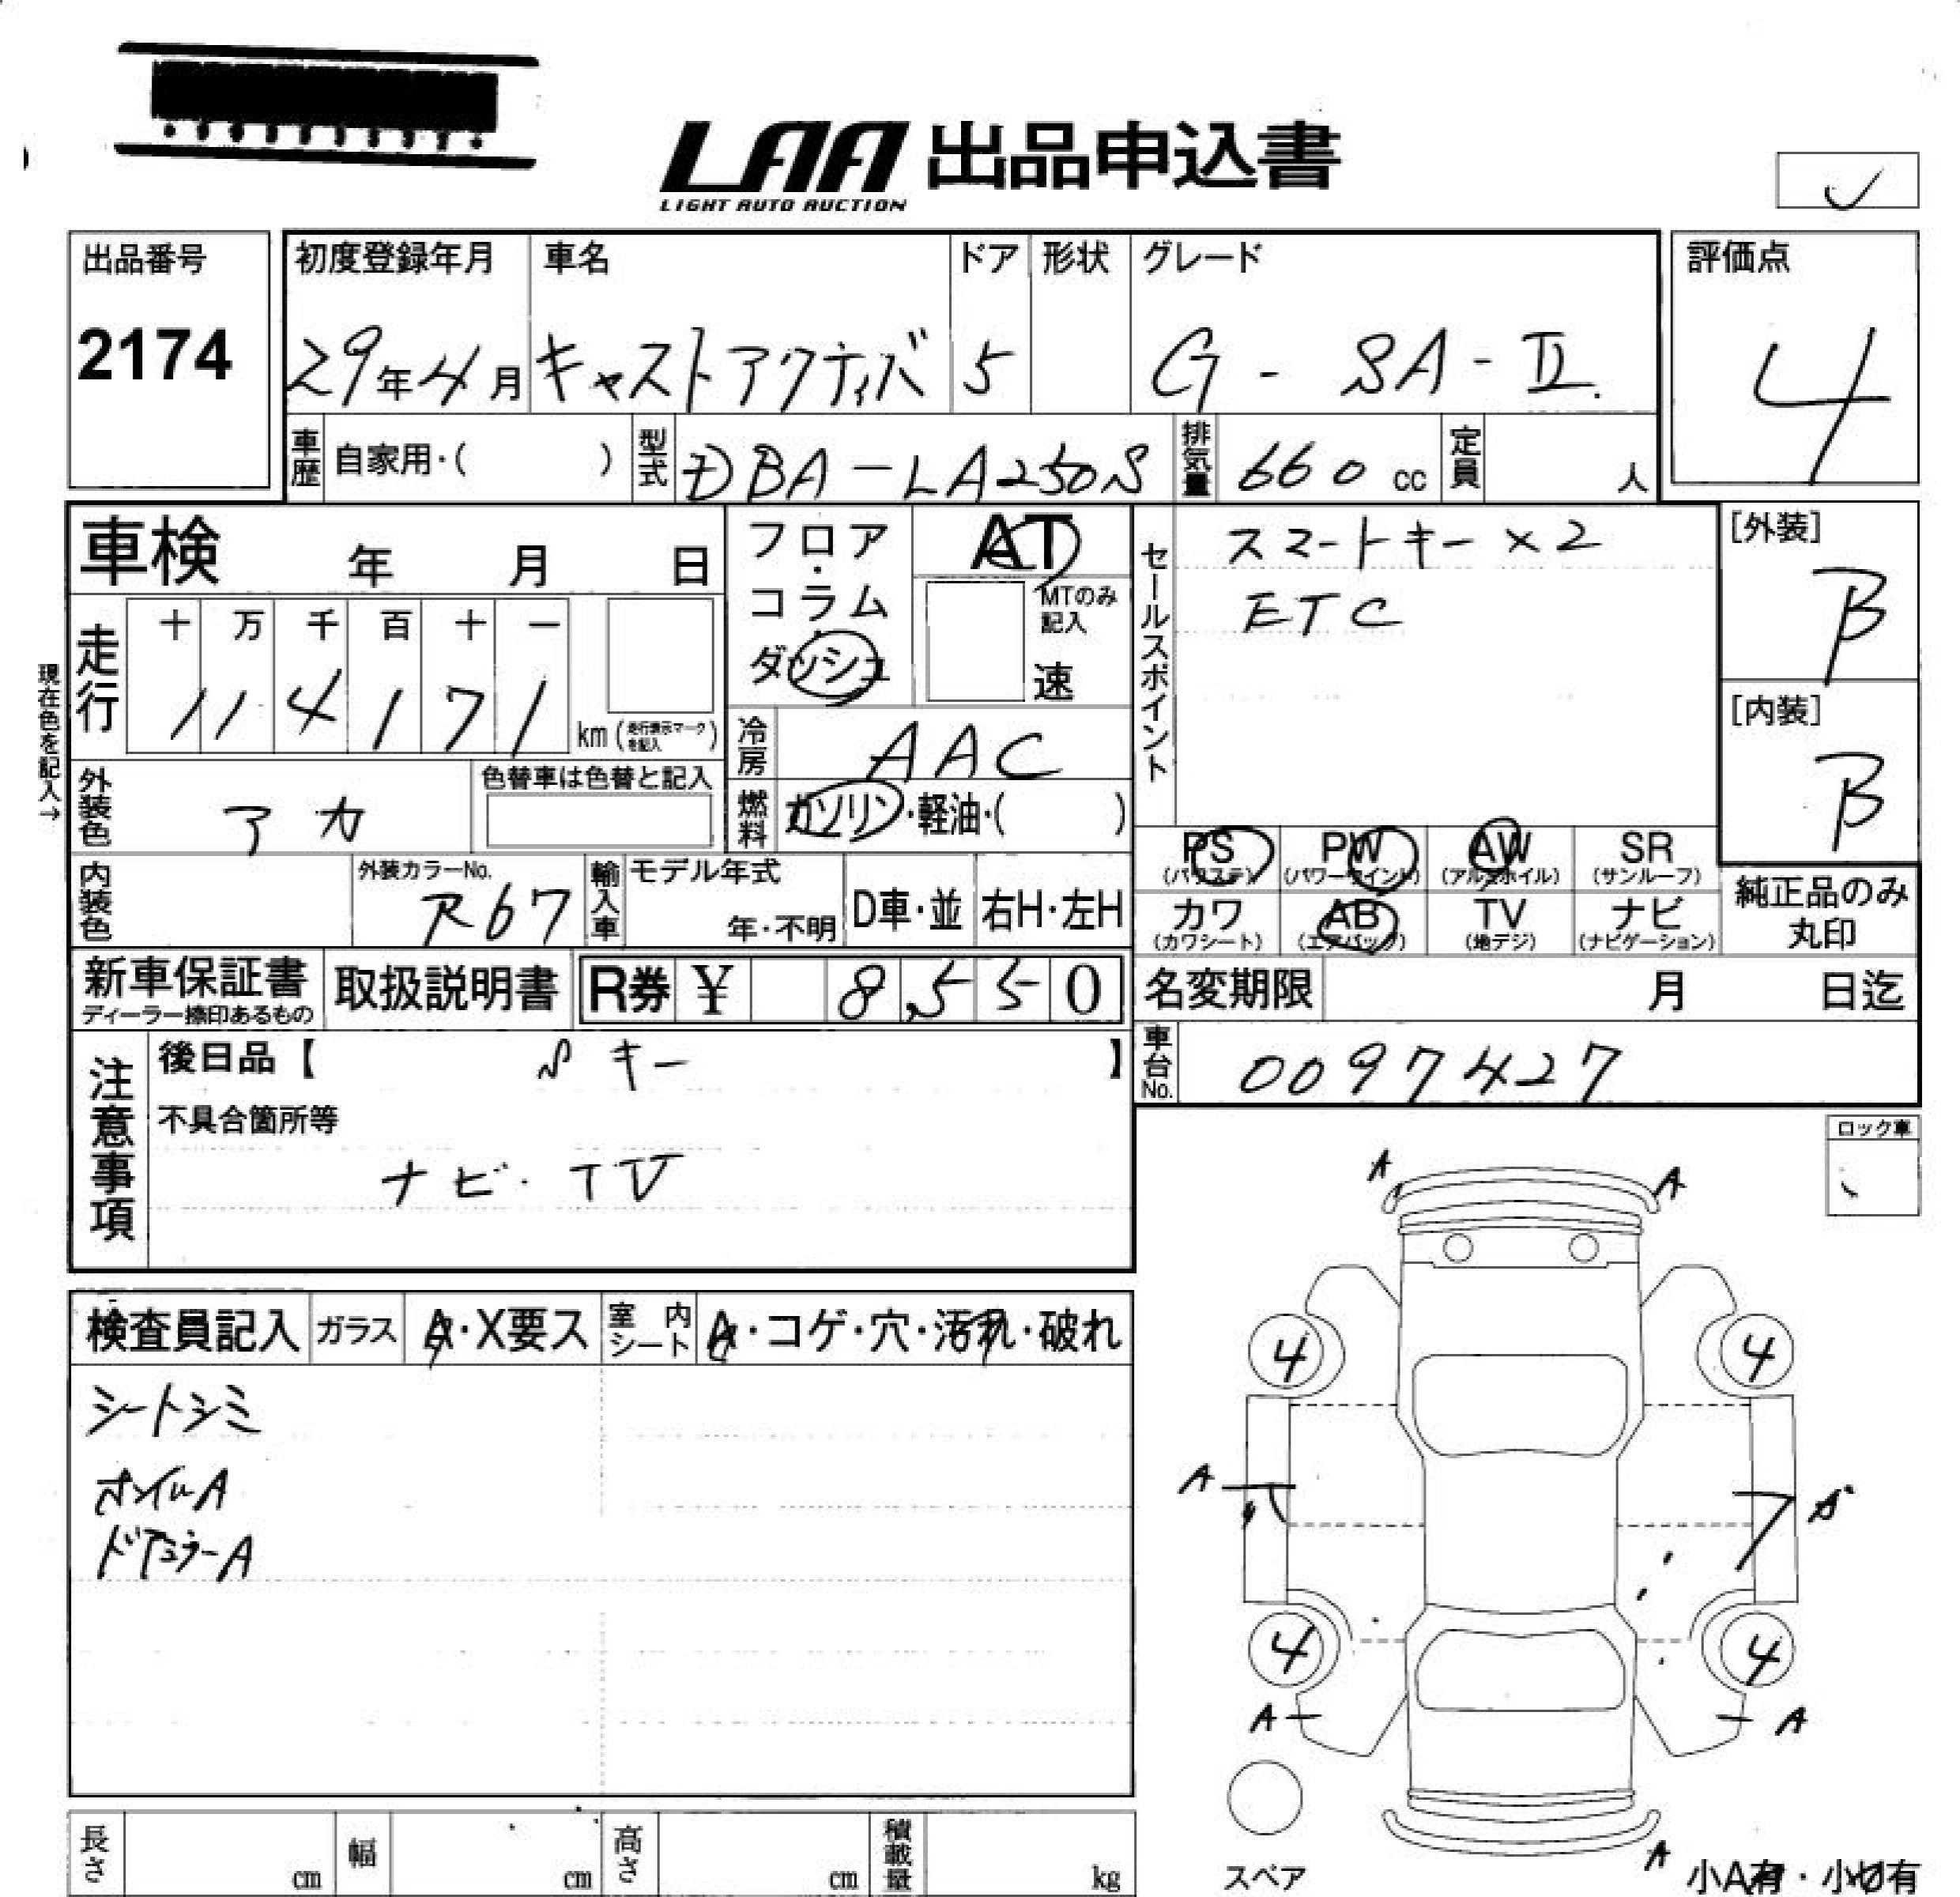 LAA 出品申込書
LIGHT AUTO AUCTION
出品番号 初度登録年月 車名 ドア 形状 グレード 評価点
2174 29年4月 キャストアクティバ 5 G - SA - II. 4
車歴 自家用・( ) 型式 DBA-LA250S 排気量 660cc 定員 人
車検 年 月 日
フロア・コラム・ダッシュ
AT
MTのみ記入
速
セールスポイント
スマートキー×2
ETC
[外装]
B
[内装]
B
現在色を記入→
走行 十 万 千 百 十 一
1 1 4 1 7 1 km (走行表示マークを記入)
冷房 AAC
外装色 アカ 色替車は色替と記入
燃料 ガソリン・軽油・( )
内装色 外装カラーNo. R67 輸入車 モデル年式 年・不明 D車・並 右H・左H
PS (パワステ) PW (パワーウインド) AW (アルミホイル) SR (サンルーフ)
カワ (カワシート) AB (エアバッグ) TV (地デジ) ナビ (ナビゲーション)
純正品のみ丸印
新車保証書 ディーラー捺印あるもの 取扱説明書 R券 ¥ 8,550
名変期限 月 日迄
車台No. 0097427
注意事項
後日品【 Sキー 】
不具合箇所等
ナビ・TV
ロック車
検査員記入 ガラス A・X要ス 室内シート A・コゲ・穴・汚れ・破れ
シートシミ
ホイルA
ドアミラーA
A A
4 4
A
4 4
A A
A
スペア
小A有・小U有
長さ cm 幅 cm 高さ cm 積載量 kg